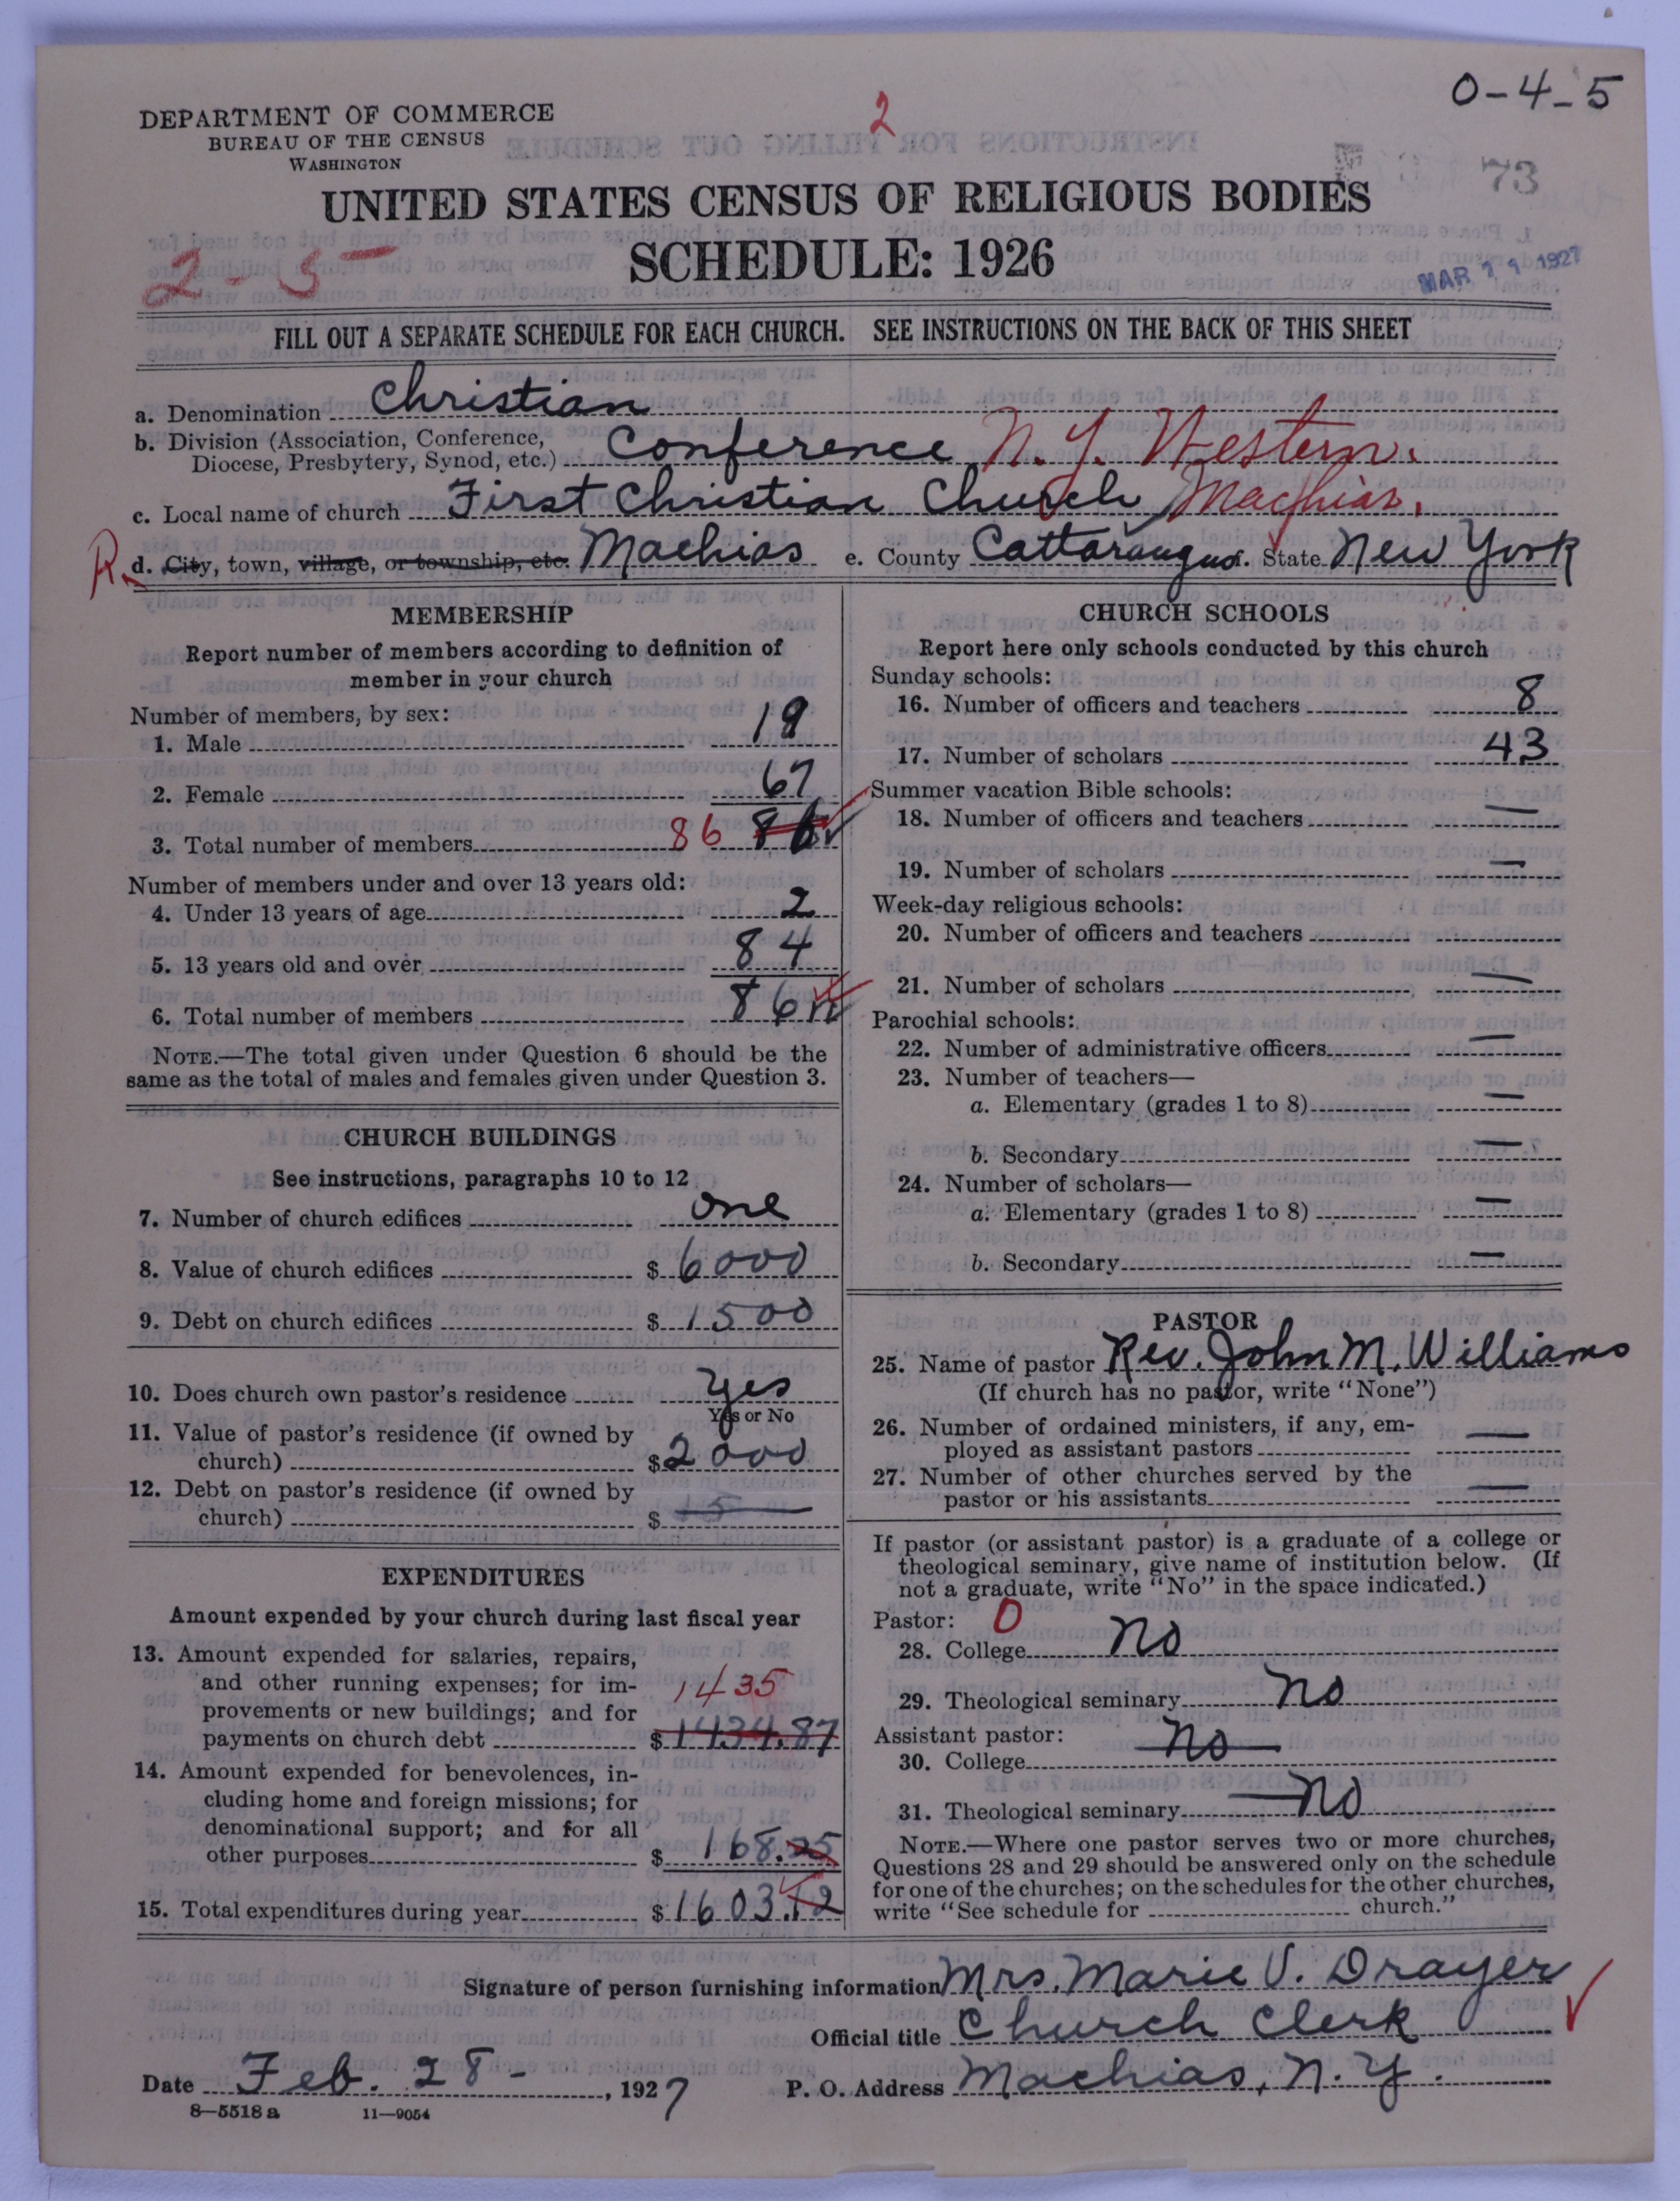 0-4-5
2
DEPARTMENT OF COMMERCE
BUREAU OF THE CENSUS
WASHINGTON
73
UNITED STATES CENSUS OF RELIGIOUS BODIES
SCHEDULE: 1926
2-5
MAR 1927
FILL OUT A SEPARATE SCHEDULE FOR EACH CHURCH. SEE INSTRUCTIONS ON THE BACK OF THIS SHEET
a. Denomination Christian
b. Division (Association, Conference, Diocese, Presbytery, Synod, etc.) Conference N.Y. Western.
c. Local name of church First Christian Church, Machias.
R. d. City, town, village, or township, etc. Machias e. County Cattaraugus. State New York
MEMBERSHIP
Report number of members according to definition of
member in your church
Number of members, by sex:
1. Male 19
2. Female 67
3. Total number of members 86 86
Number of members under and over 13 years old:
4. Under 13 years of age 2
5. 13 years old and over 84
6. Total number of members 86
NOTE.—The total given under Question 6 should be the
same as the total of males and females given under Question 3.
CHURCH BUILDINGS
See instructions, paragraphs 10 to 12
7. Number of church edifices one
8. Value of church edifices $ 6000
9. Debt on church edifices $ 1500
10. Does church own pastor's residence Yes
Yes or No
11. Value of pastor's residence (if owned by
church) $ 2000
12. Debt on pastor's residence (if owned by
church) $ 15
EXPENDITURES
Amount expended by your church during last fiscal year
13. Amount expended for salaries, repairs,
and other running expenses; for im-
provements or new buildings; and for 1435
payments on church debt $ 1434.87
14. Amount expended for benevolences, in-
cluding home and foreign missions; for
denominational support; and for all
other purposes $ 168.25
15. Total expenditures during year $ 1603.12
CHURCH SCHOOLS
Report here only schools conducted by this church
Sunday schools:
16. Number of officers and teachers 8
17. Number of scholars 43
Summer vacation Bible schools:
18. Number of officers and teachers —
19. Number of scholars —
Week-day religious schools:
20. Number of officers and teachers
21. Number of scholars —
Parochial schools:
22. Number of administrative officers —
23. Number of teachers—
a. Elementary (grades 1 to 8) —
b. Secondary —
24. Number of scholars—
a. Elementary (grades 1 to 8) —
b. Secondary —
PASTOR
25. Name of pastor Rev. John M. Williams
(If church has no pastor, write "None")
26. Number of ordained ministers, if any, em-
ployed as assistant pastors —
27. Number of other churches served by the
pastor or his assistants —
If pastor (or assistant pastor) is a graduate of a college or
theological seminary, give name of institution below. (If
not a graduate, write "No" in the space indicated.)
Pastor: 0
28. College No
29. Theological seminary No
Assistant pastor:
30. College No
31. Theological seminary No
NOTE.—Where one pastor serves two or more churches,
Questions 28 and 29 should be answered only on the schedule
for one of the churches; on the schedules for the other churches,
write "See schedule for church."
Signature of person furnishing information Mrs. Marie V. Drayer
Official title Church Clerk
Date Feb. 28-, 1927 P. O. Address Machias, N.Y.
8—5518 a 11—9054